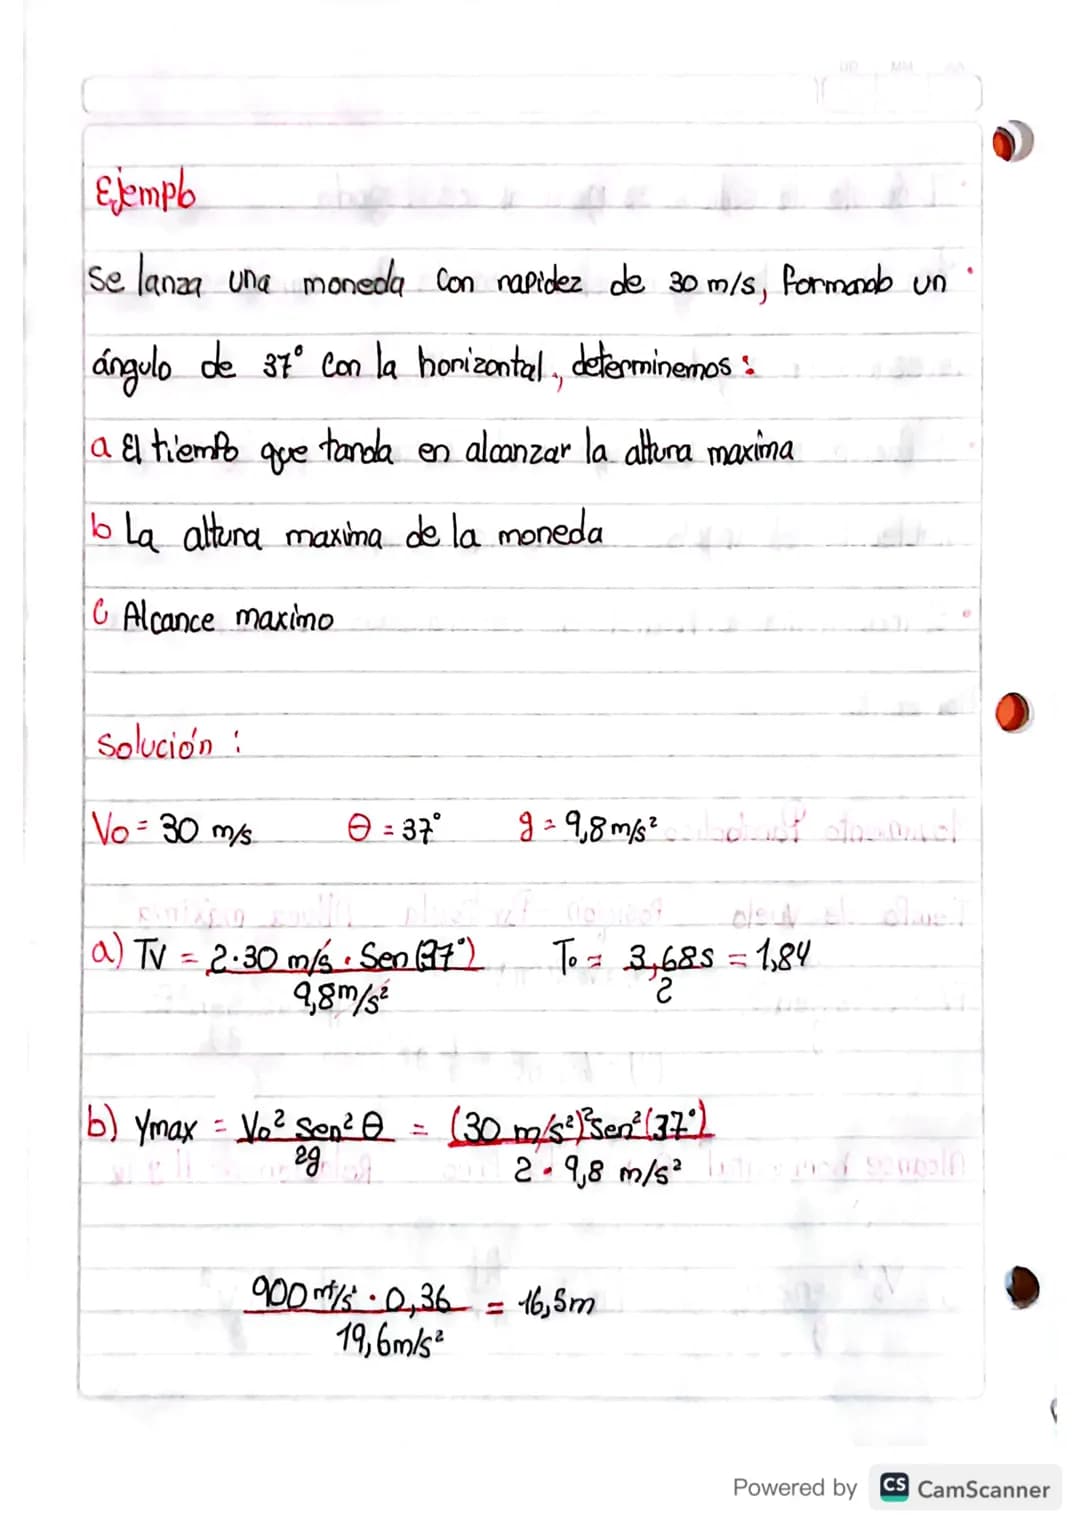 Ejemplo
Se lanza una moneda con rapidez de 30 m/s, formando un
ángulo de 37° con la horizontal, determinemos:
a El tiempo que tarda en alcanzar la altura maxima
b La altura maxima de la moneda
C Alcance maximo
Solución:
Vo = 30 m/s θ = 37° g = 9,8 m/s²
a) TV = 2·30 m/s · Sen (37°) / 9,8 m/s² To = 3,68s / 2 = 1,84
b) Ymax = Vo² Sen² θ / 2g = (30 m/s²)² Sen² (37°) / 2 · 9,8 m/s²
900 m²/s² · 0,36 / 19,6 m/s² = 16,5m
Powered by CS CamScanner